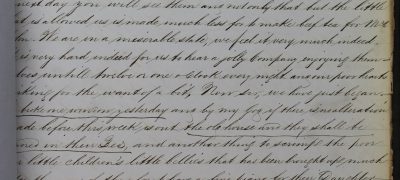 next day you will see them and not only that but the little
it is allowed us is made much less for to make beef tea for Mr
We are in a miserable state, we feel it very much indeed,
is very hard indeed for us to hear a jolly company enjoying them-
selves, untill twelve or one o clock every night and our poor hearts
aking for the want of a bit, Now Sir, we have just began
broke one window yesterday and by my God if there is an alteration
made before this week is out the old house and they shall be
in their Beds, and another thing to scrimpt the poor
little children's little bellies that has been bought up, much
their Daughter